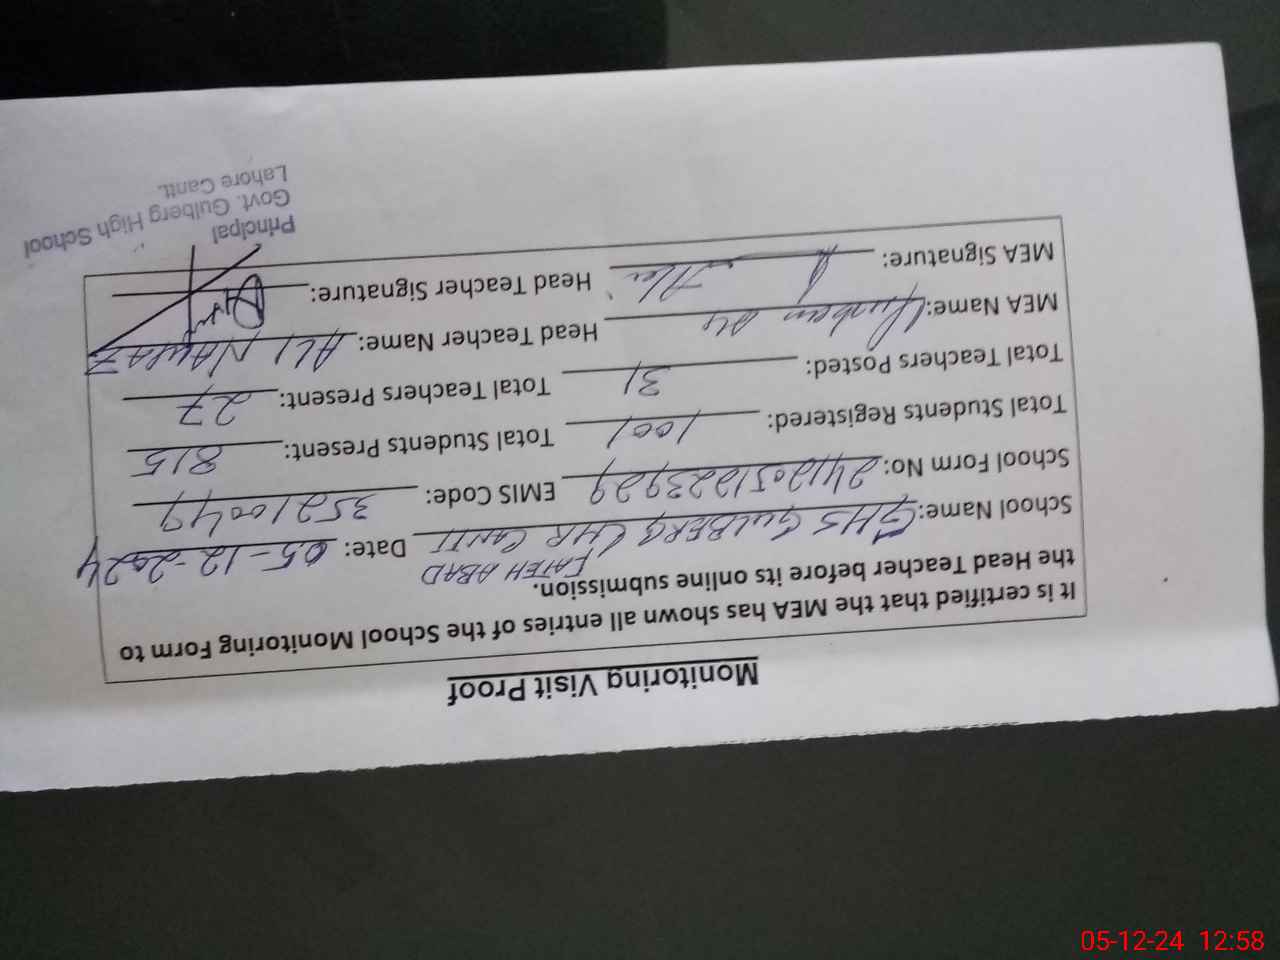 Monitoring Visit Proof
It is certified that the MEA has shown all entries of the School Monitoring Form to
the Head Teacher before its online submission.
FATEH ABAD
School Name: GHS GULBERG LHR CANTT Date: 05-12-2024
School Form No: 2412051223929 EMIS Code: 35210049
Total Students Registered: 1001 Total Students Present: 815
Total Teachers Posted: 31 Total Teachers Present: 27
MEA Name: Head Teacher Name: ALI NAWAZ
MEA Signature: Head Teacher Signature:
Principal
Govt. Gulberg High School
Lahore Cantt.
05-12-24 12:58